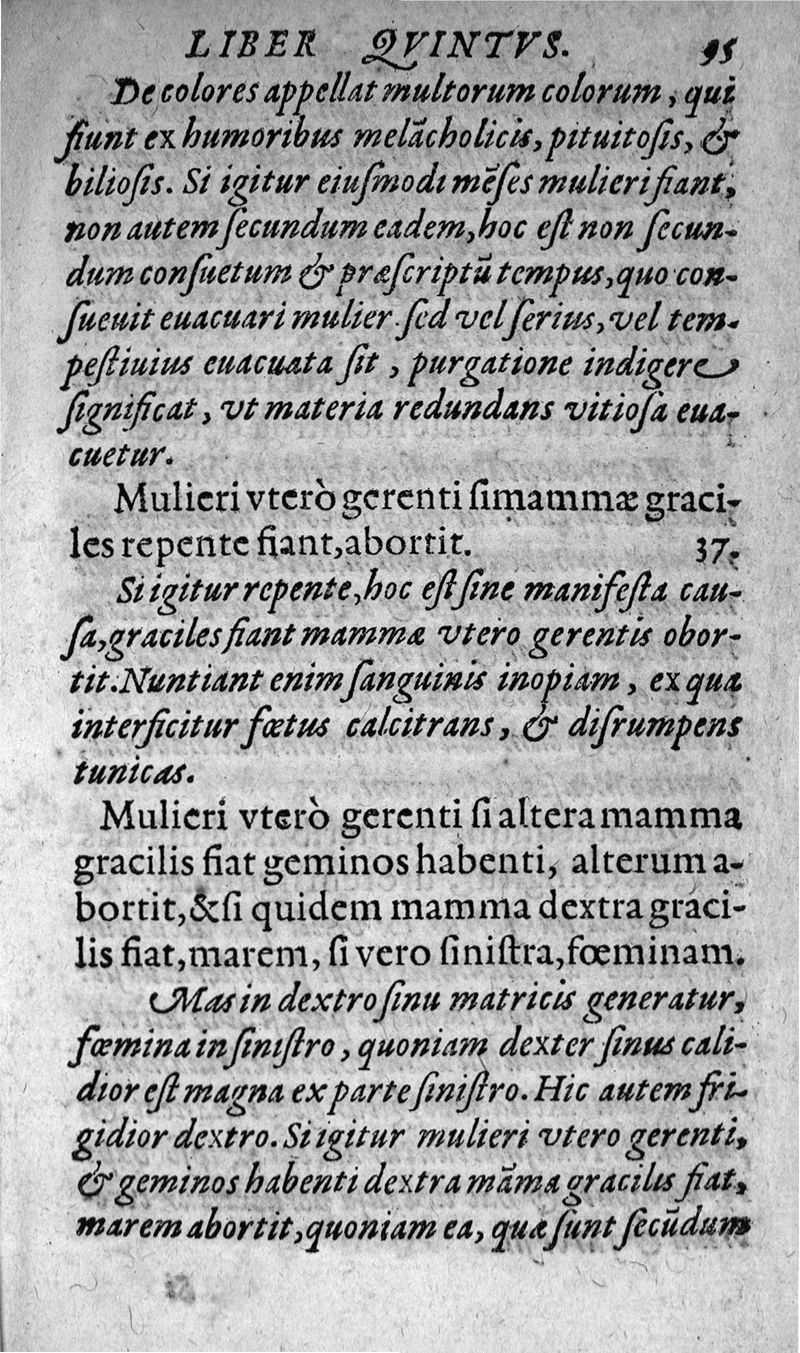 LIBER QVINTVS. 95
De colores appellat multorum colorum, qui
fiunt ex humoribus melācholicis, pituitoſis, &
bilioſis. Si igitur eiuſmodi mēſes mulieri fiant,
non autem ſecundum eadem, hoc eſt non ſecun-
dum conſuetum & præſcriptū tempus, quo con-
ſueuit euacuari mulier. ſed vel ſerius, vel tem-
peſtiuius euacuata ſit, purgatione indigere
ſignificat, vt materia redundans vitioſa eua-
cuetur.
Mulieri vterò gerenti ſi mammæ graci-
les repente fiant, abortit. 37.
Si igitur repente, hoc eſt ſine manifeſta cau-
ſa, graciles fiant mammæ vtero gerentis obor-
tit. Nuntiant enim ſanguinis inopiam, ex qua
interficitur fœtus calcitrans, & diſrumpens
tunicas.
Mulieri vterò gerenti ſi altera mamma
gracilis fiat geminos habenti, alterum a-
bortit, & ſi quidem mamma dextra graci-
lis fiat, marem, ſi vero ſiniſtra, fœminam.
Mas in dextro ſinu matricis generatur,
fœmina in ſiniſtro, quoniam dexter ſinus cali-
dior eſt magna ex parte ſiniſtro. Hic autem fri-
gidior dextro. Si igitur mulieri vtero gerenti,
& geminos habenti dextra māma gracilis fiat,
marem abortit, quoniam ea, quæ ſunt ſecūdum